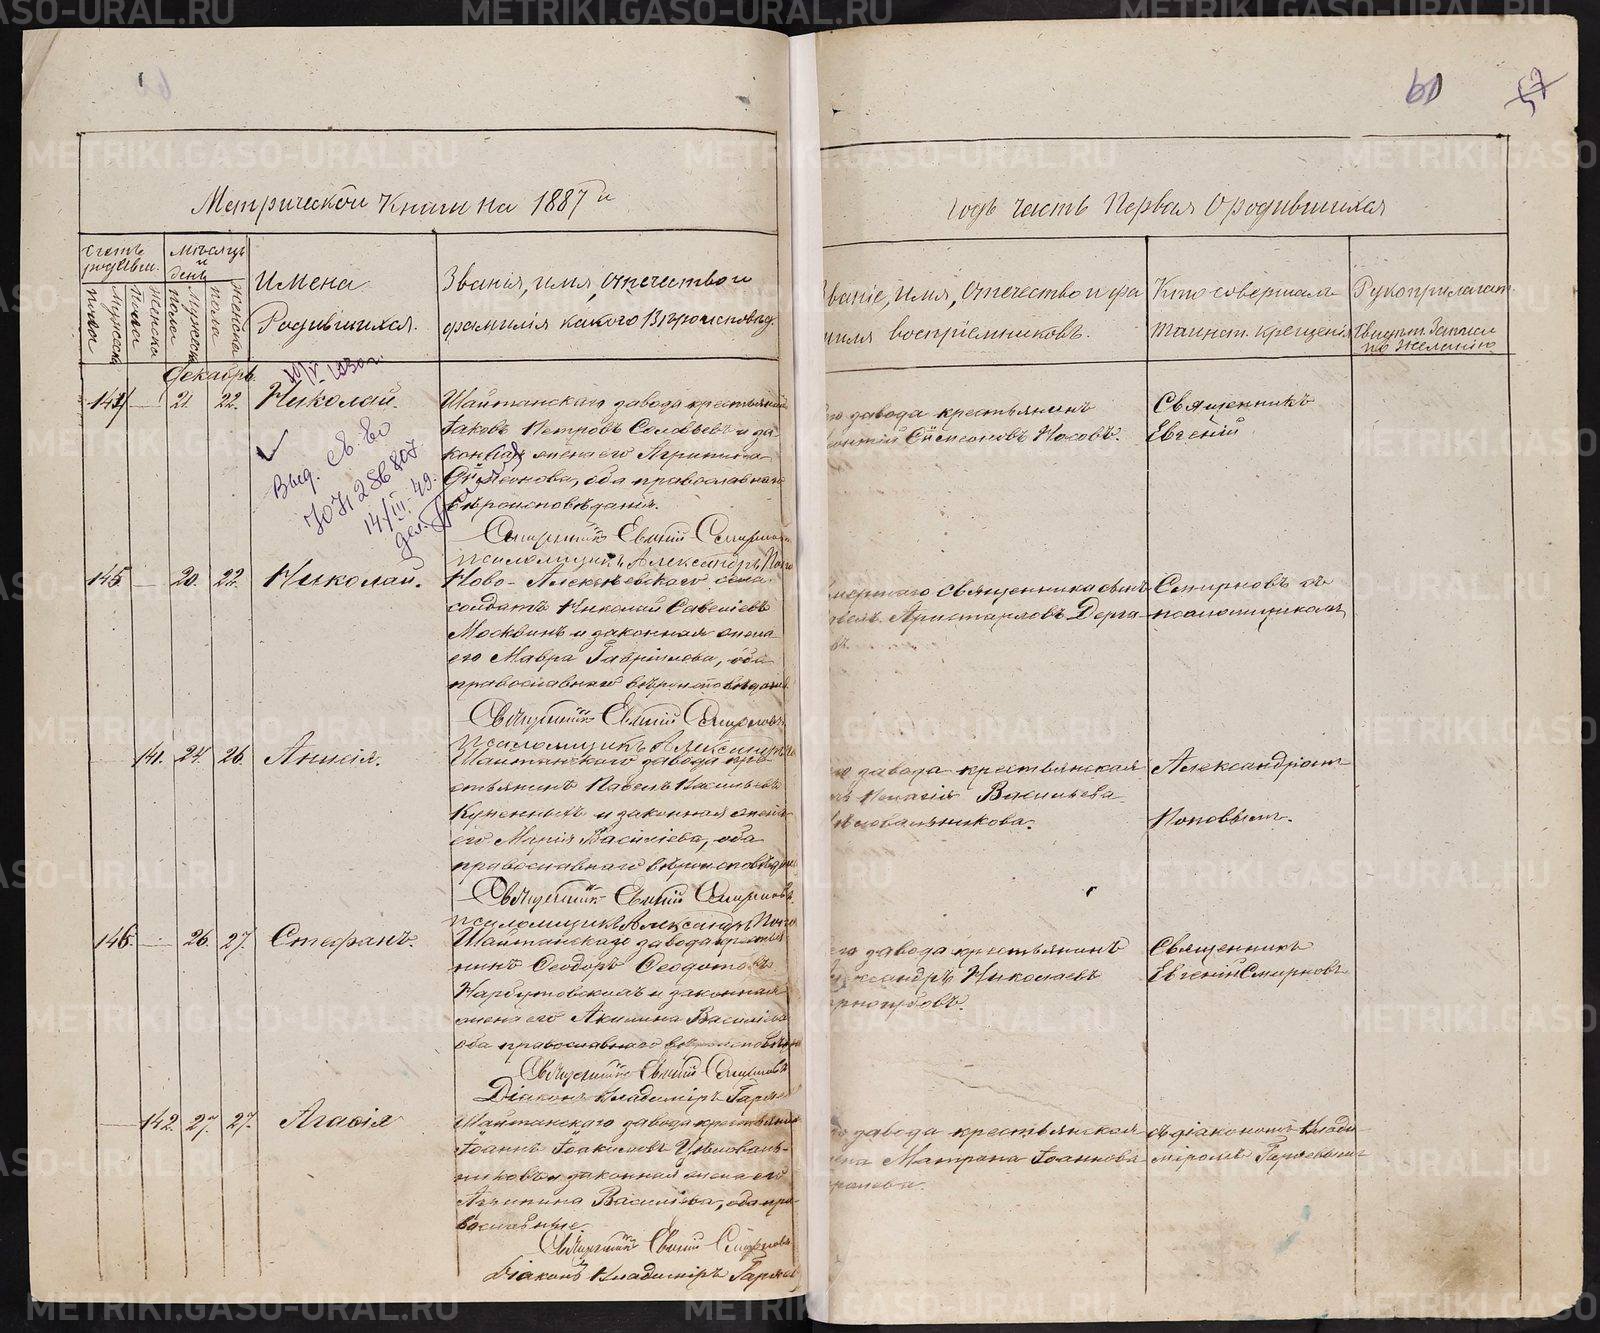 60 57
Метрической Книги на 1887й
годъ часть Первая О родившихся
Счетъ родивш.
Мѣсяцъ и день
Имена Родившихся.
Званія, имя, Отчество и
фамилія какого Вѣроисповѣд.
Званіе, Имя, Отчество и фа
милія воспріемниковъ.
Кто совершалъ
таинст. крещенія
Рукоприкладст.
свидѣт. записи
по желанію
Мужеска пола
Женска пола
Мужеска пола
Женска пола
Декабрь.
144 21. 22. Николай.
Выд. св-во
14/III-49.
Шайтанскаго завода крестьянинъ
Іаковъ Петровъ Соловьевъ и за
конная жена его Агрипина
Сѵмеонова, оба православнаго
вѣроисповѣданія.
Священникъ Евгеній Смирновъ
псаломщикъ Александръ Попо
го завода крестьянинъ
Сѵмеоновъ Носовъ.
Священникъ
Евгеній
145 20. 22. Николай.
Ново-Алексѣевскаго села
солдатъ Николай Савеліевъ
Москвинъ и законная жена
его Мавра Гавріилова, оба
православнаго вѣроисповѣданія
Священникъ Евгеній Смирновъ
псаломщикъ Александръ
мершаго священника сынъ
Аристарховъ Дерга
въ.
Смирновъ съ
псаломщикомъ
141. 24. 26. Анисія.
Шайтанскаго завода кре
стьянинъ Павелъ Васильевъ
и законная жена
его Марія Василіева, оба
православнаго вѣроисповѣдані
Священникъ Евгеній Смирновъ.
псаломщикъ Александръ Попо
го завода крестьянская
Васильева
Цѣловальникова.
Александромъ
Поповымъ.
146. 26. 27. Стефанъ.
Шайтанскаго завода крестья
нинъ Ѳеодоръ Ѳеодотовъ
Нарбутовскихъ и законная
жена его Акилина Василіева
оба православнаго вѣроисповѣдан
Священникъ Евгеній Смирновъ
Діаконъ Владимиръ Гаряе
го завода крестьянинъ
лександръ Николаевъ
рногубовъ.
Священникъ
Евгеній Смирновъ
142. 27. 27. Агаѳія
Шайтанскаго завода крестьянинъ
Іоаннъ Іоакимовъ Цѣловаль-
никовъ и законная жена его
Агрипина Василіева, оба пра-
вославные
Священникъ Евгеній Смирновъ
Діаконъ Владимиръ Гаряев
го завода крестьянская
Матрона Іоаннова
ролева.
съ діакономъ Влади
міромъ Гаряевымъ
METRIKI.GASO-URAL.RU